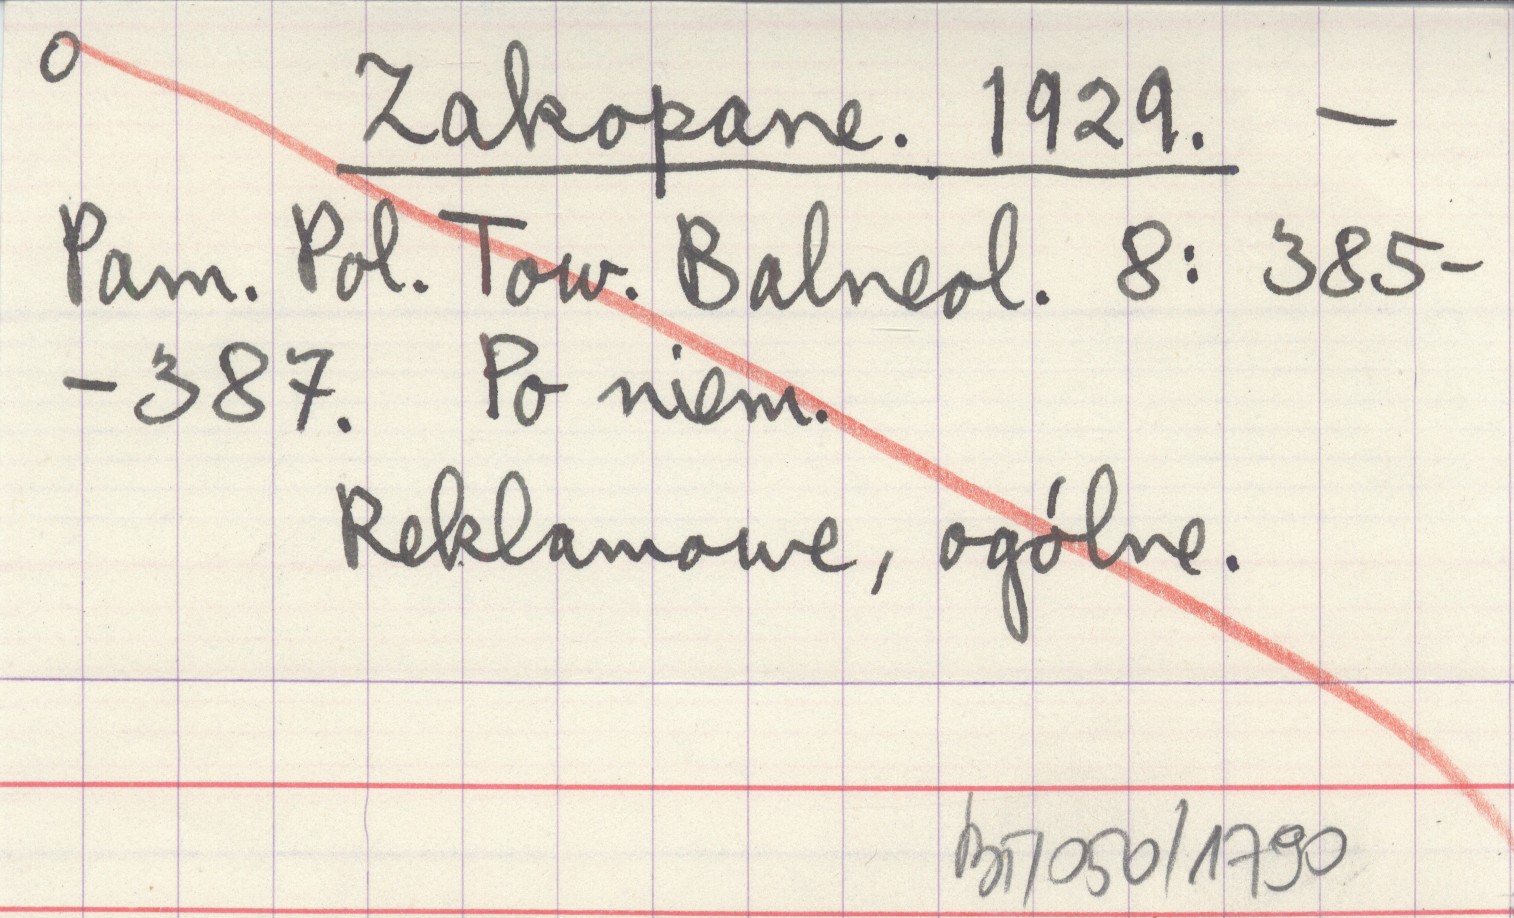 O
Zakopane. 1929. —
Pam. Pol. Tow. Balneol. 8: 385-
-387. Po niem.
Reklamowe, ogólne.
BT/050/1790